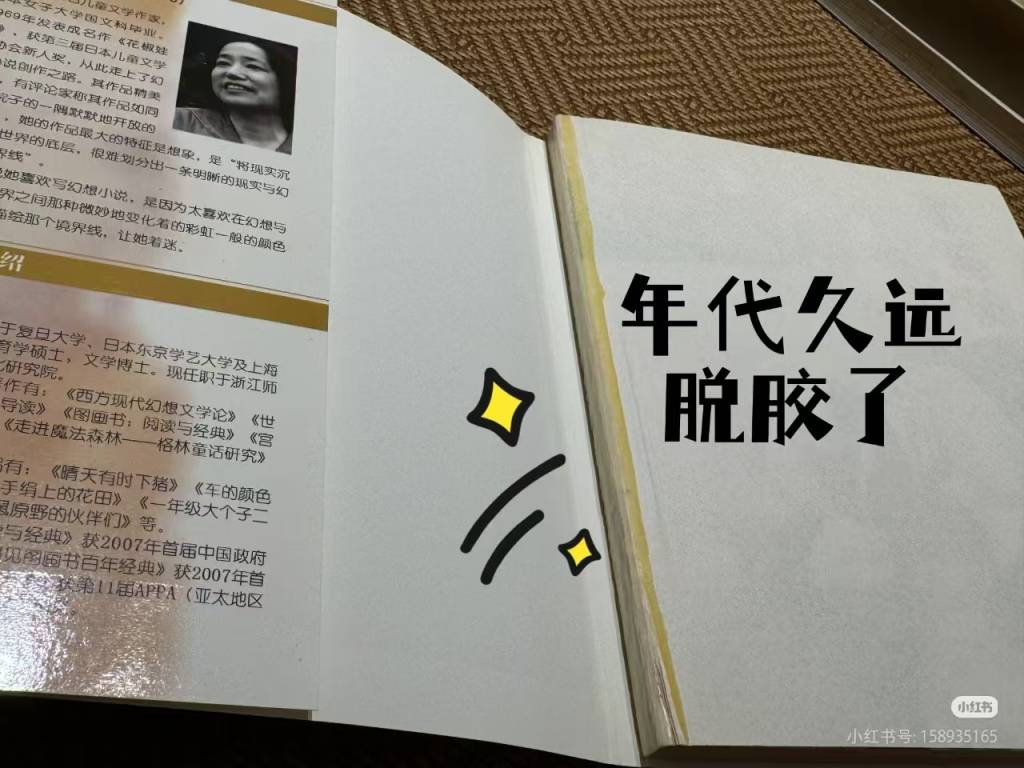 儿童文学作家，
女子大学国文科毕业。
969年发表成名作《花椒娃
》，获第三届日本儿童文学
协会新人奖，从此走上了幻
说创作之路。其作品精美
，有评论家称其作品如同
院子的一隅默默地开放的
，她的作品最大的特征是想象，是“将现实沉
世界的底层，很难划分出一条明晰的现实与幻
界线”。
说她喜欢写幻想小说，是因为太喜欢在幻想与
界之间那种微妙地变化着的彩虹一般的颜色
描绘那个境界线，让她着迷。
绍
于复旦大学、日本东京学艺大学及上海
育学硕士，文学博士。现任职于浙江师
化研究院。
作有：《西方现代幻想文学论》《世
导读》《图画书：阅读与经典》《宫
《走进魔法森林——格林童话研究》
有：《晴天有时下猪》《车的颜色
手绢上的花田》《一年级大个子二
原野的伙伴们》等。
与经典》获2007年首届中国政府
见图画书百年经典》获2007年首
获第11届APPA（亚太地区
年代久远
脱胶了
小红书
小红书号: 158935165